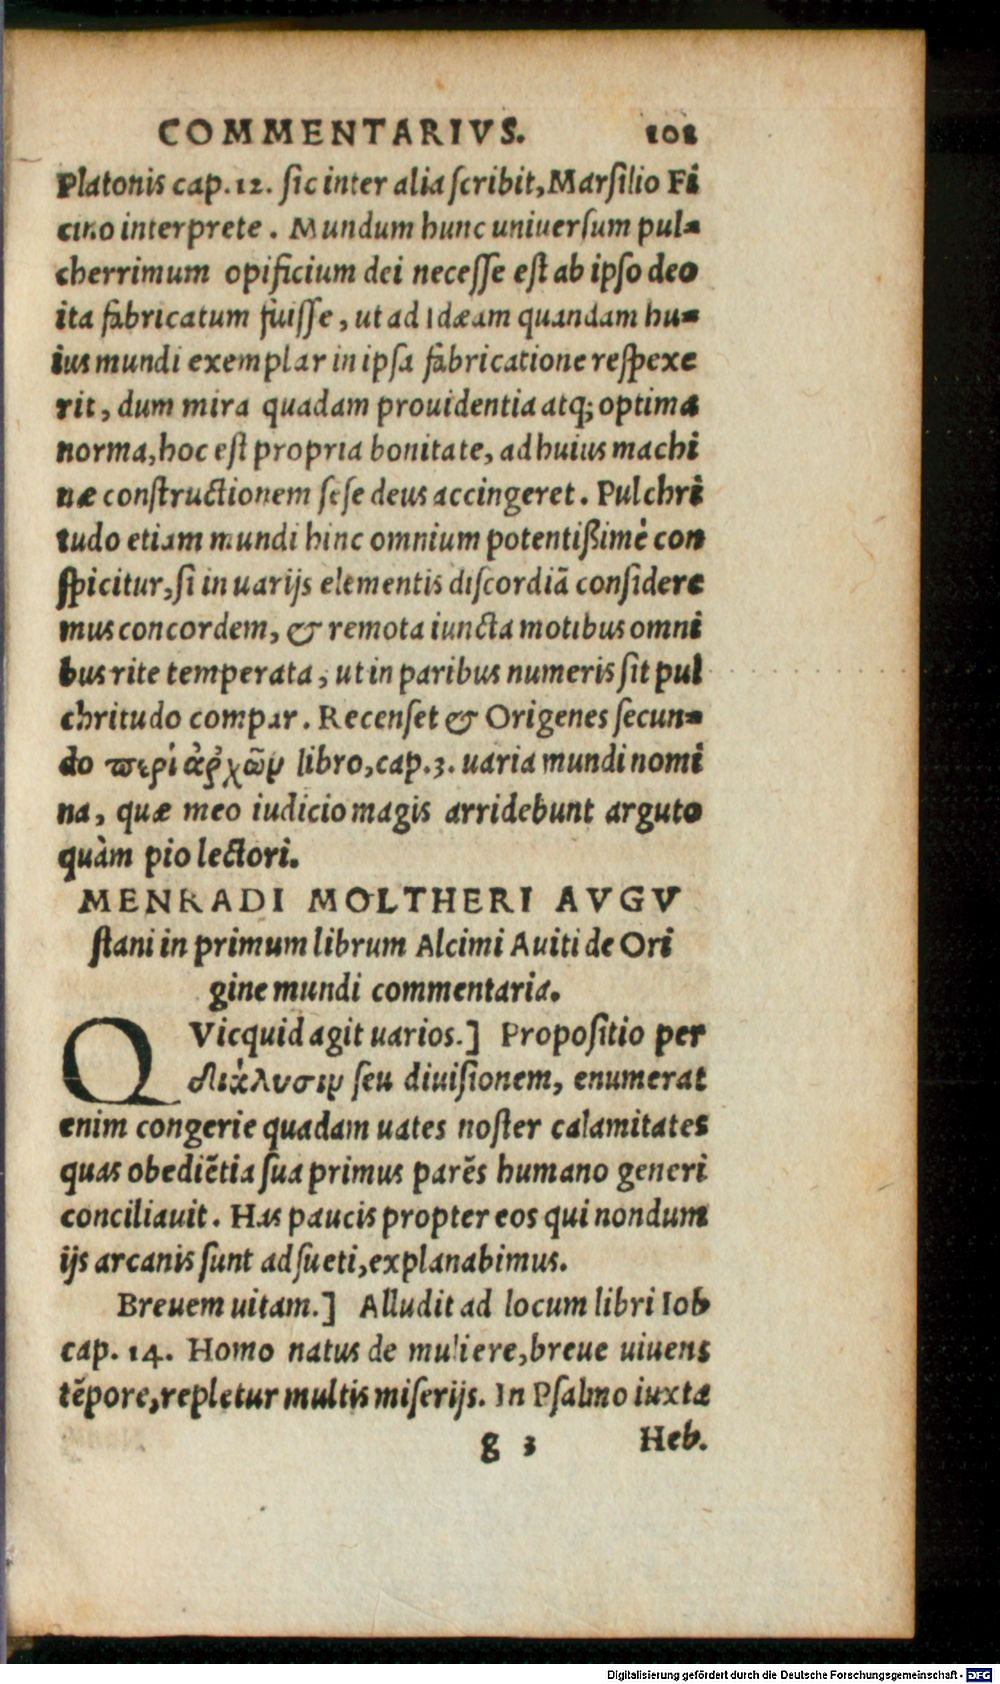 COMMENTARIVS. 101
Platonis cap.12. sic inter alia scribit, Marsilio Fi
cino interprete. Mundum hunc uniuersum pul-
cherrimum opificium dei necesse est ab ipso deo
ita fabricatum fuisse, ut ad Idæam quandam hu-
ius mundi exemplar in ipsa fabricatione respexe
rit, dum mira quadam prouidentia atq; optima
norma, hoc est propria bonitate, ad huius machi
næ constructionem sese deus accingeret. Pulchri
tudo etiam mundi hinc omnium potentißimè con
spicitur, si in uarijs elementis discordiã considere
mus concordem, & remota iuncta motibus omni
bus rite temperata, ut in paribus numeris sit pul
chritudo compar. Recenset & Origenes secun-
do περὶ ἀρχῶν libro, cap.3. uaria mundi nomi
na, quæ meo iudicio magis arridebunt arguto
quàm pio lectori.
MENRADI MOLTHERI AVGV
stani in primum librum Alcimi Auiti de Ori
gine mundi commentaria.
QVicquid agit uarios.] Propositio per
διάλυσιν seu diuisionem, enumerat
enim congerie quadam uates noster calamitates
quas obediẽtia sua primus parẽs humano generi
conciliauit. Has paucis propter eos qui nondum
ijs arcanis sunt adsueti, explanabimus.
Breuem uitam.] Alludit ad locum libri Iob
cap. 14. Homo natus de muliere, breue uiuens
tẽpore, repletur multis miserijs. In Psalmo iuxta
g 3 Heb.
Digitalisierung gefördert durch die Deutsche Forschungsgemeinschaft - DFG